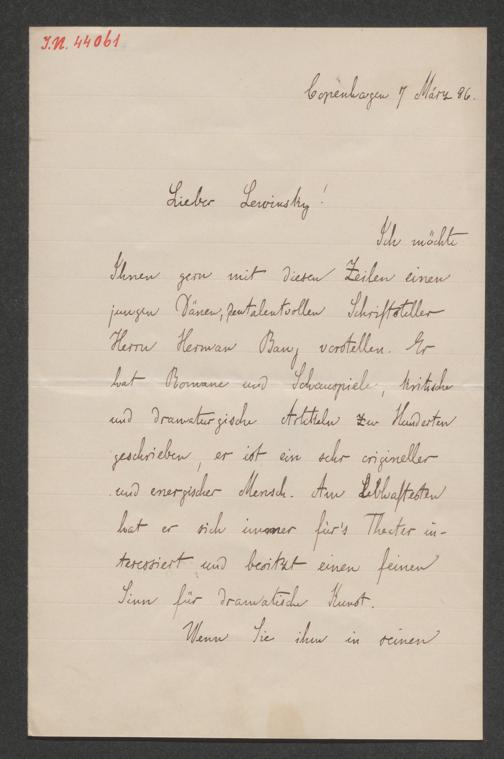 I.N. 44061
Copenhagen 7 März 86.
Lieber Lewinsky!
Ich möchte
Ihnen gern mit diesen Zeilen einen
jungen Dänen, talentvollen Schriftsteller
Herrn Herman Bang vorstellen. Er
hat Romane und Schauspiele, kritische
und dramaturgische Artikeln zu Hunderten
geschrieben, er ist ein sehr origineller
und energischer Mensch. Am Lebhaftesten
hat er sich immer für's Theater in-
teressiert und besitzt einen feinen
Sinn für dramatische Kunst.
Wenn Sie ihm in seinen